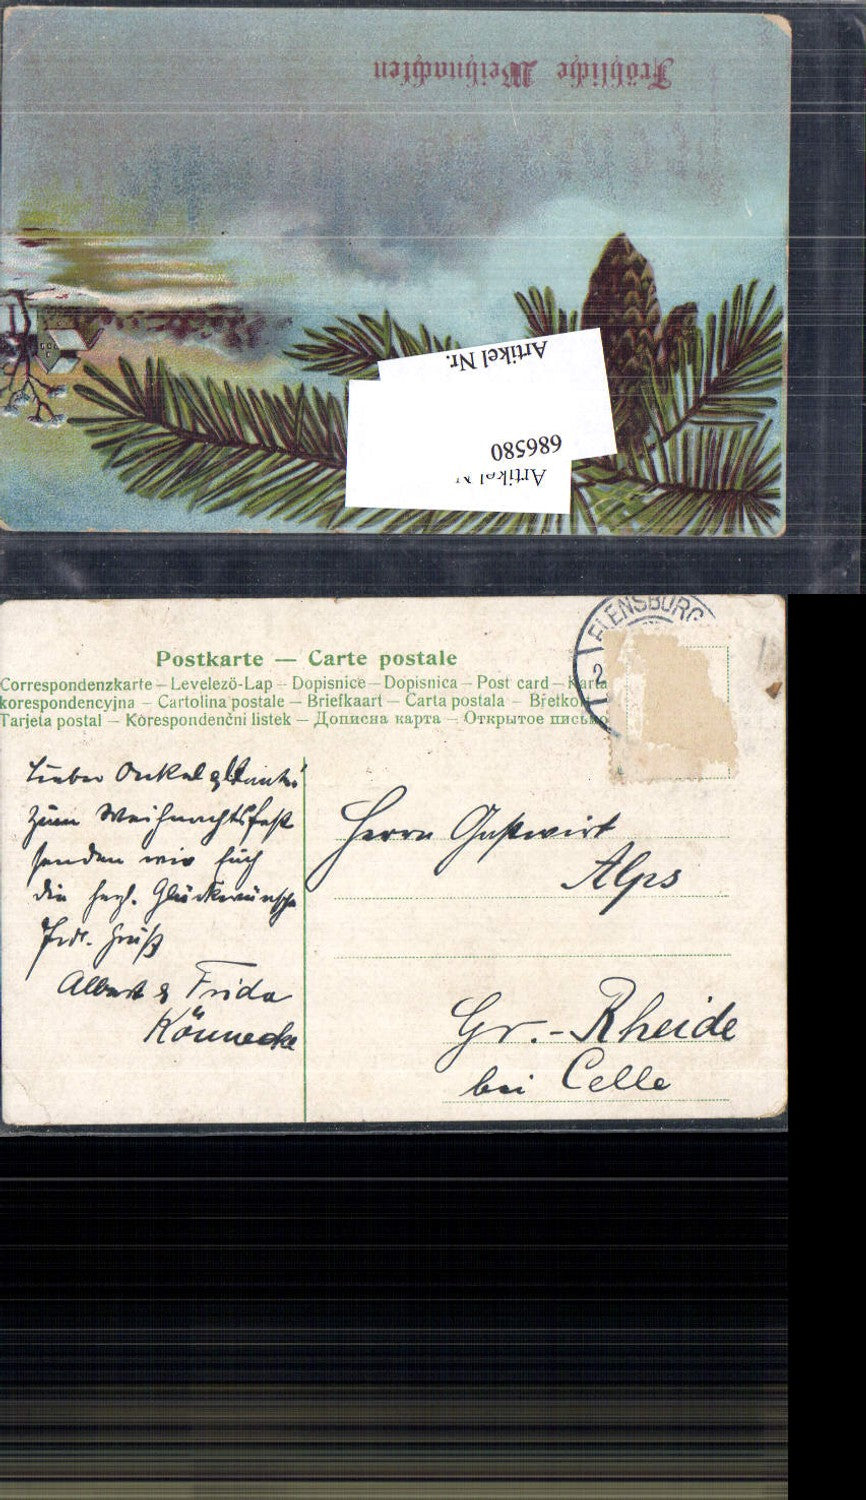 Fröhliche Weihnachten
Artikel Nr.
686580
Artikel Nr
FLENSBURG
2
Postkarte — Carte postale
Correspondenzkarte – Levelező-Lap – Dopisnice – Dopisnica – Post card – Karta
korespondencyjna – Cartolina postale – Briefkaart – Carta postala – Brefkor
Tarjeta postal – Korespondenční listek – Дописна карта – Открытое письмо
Lieber Onkel & Tante!
zum Weihnachtsfest
senden wir Euch
die herzl. Glückwünsche
Frdl. Gruß
Albert & Frida
Könnecke
Herrn Gastwirt
Alps
Gr.-Rheide
bei Celle